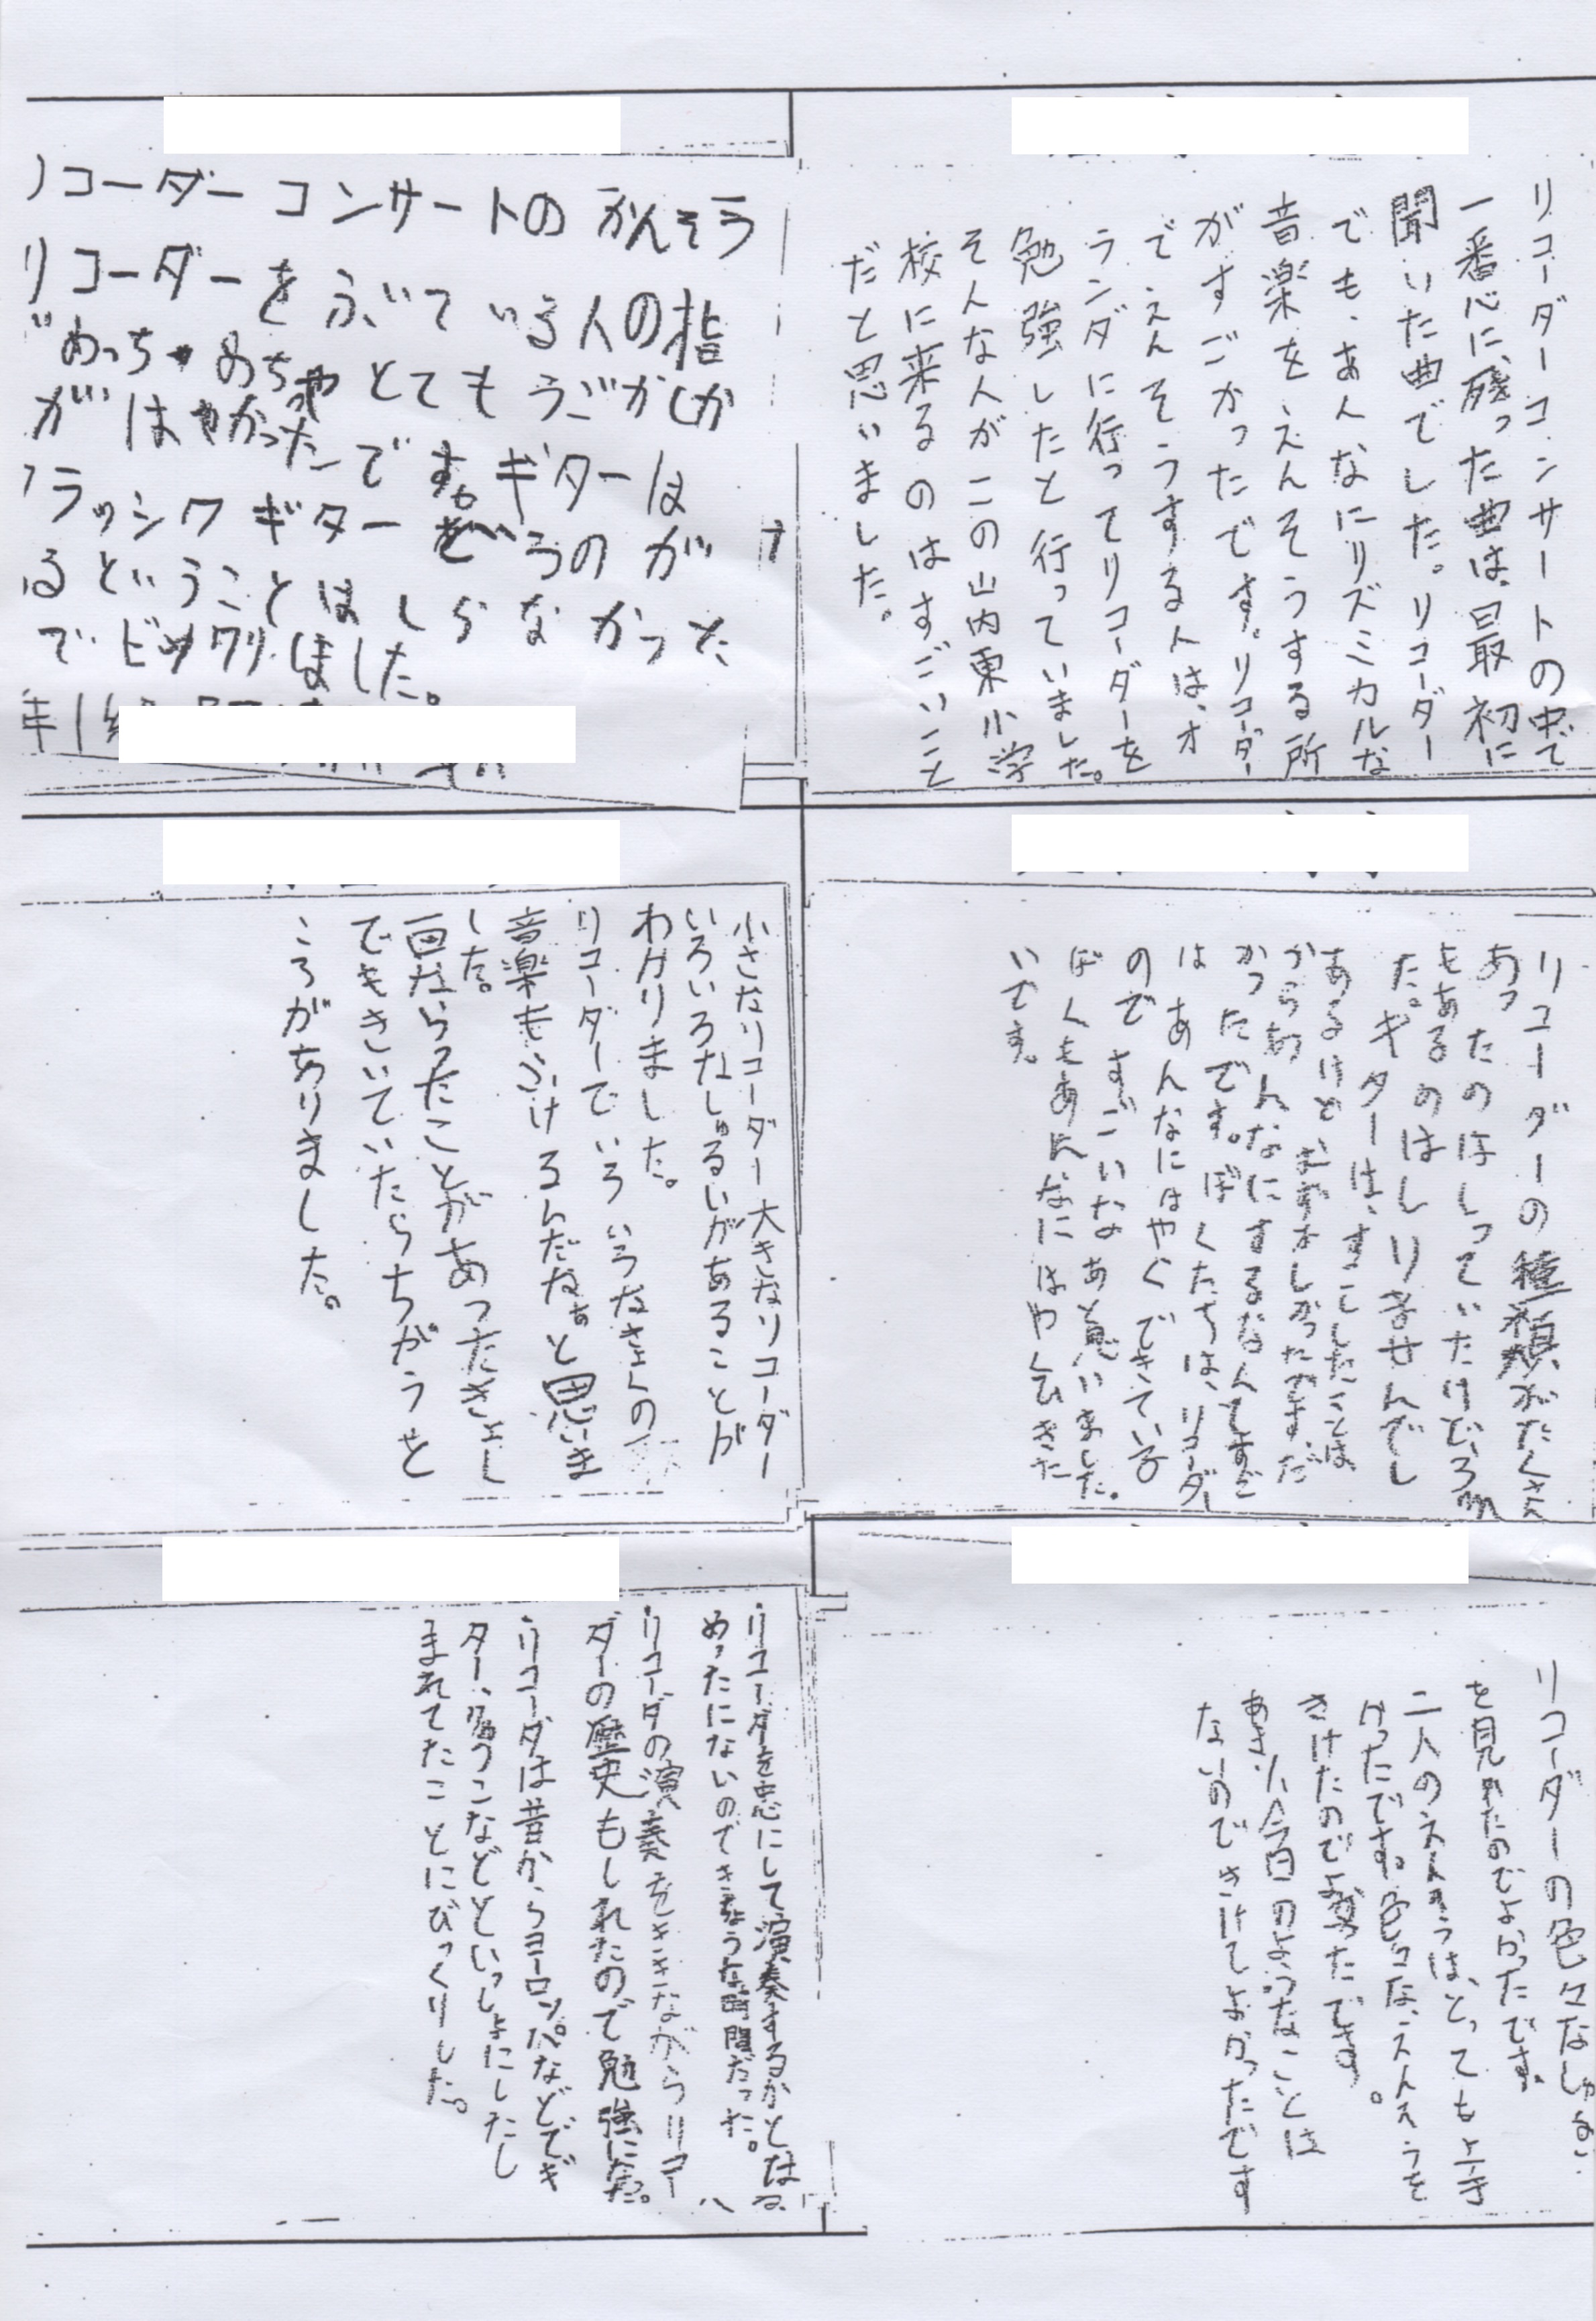 リコーダーコンサートの中で
一番心に残った曲は、最初に
聞いた曲でした。リコーダー
でも、あんなにリズミカルな
音楽をえんそうする所
がすごかったです。リコーダー
でえんそうする人は、オ
ランダに行ってリコーダーを
勉強したと行っていました。
そんな人がこの山内東小学
校に来るのはすごいこと
だと思いました。
リコーダーコンサートのかんそう
リコーダーをふいている人の指
がはやかったんです。ギターは
クラッシクギター
るということはしらなかった
でビックリしました。
リコーダーの種類がたくさん
あったのはしっていたけど、
もあるのはしりませんでし
た。ギターは、すこししたことは
あるけどむずかしかったです。だ
からあんなにするなんてすご
かったです。ぼくたちは、リコーダー
はあんなにはやくできている
のですごいなあと思いました。
ぼくもあんなにはやくひきた
いです。
小さなリコーダー大きなリコーダー
いろいろなしゅるいがあることが
わかりました。
リコーダーでいろいろなきょくの
音楽もふけるんだなぁと思いま
した。
一回ならったことがあったきょくし
でもきいていたらちがうと
ころがありました。
リコーダーの色々なしゅるい
を見れたのでよかったです。
二人のえんそうは、とっても上手
かったです。色々な、えんそうを
きけたのでよかったです。
あまり今回のようなことは
ないのできけてよかったです
・リコーダーを芯にして演奏するかとはる
めったにないのできちょうな時間だった。
・リコーダの演奏をききながらリコー
ダーの歴史もしれたので勉強になった。
・リコーダは昔からヨーロッパなどでギ
ター、たいこなどといっしょにしたし
まれてたことにびっくりした。